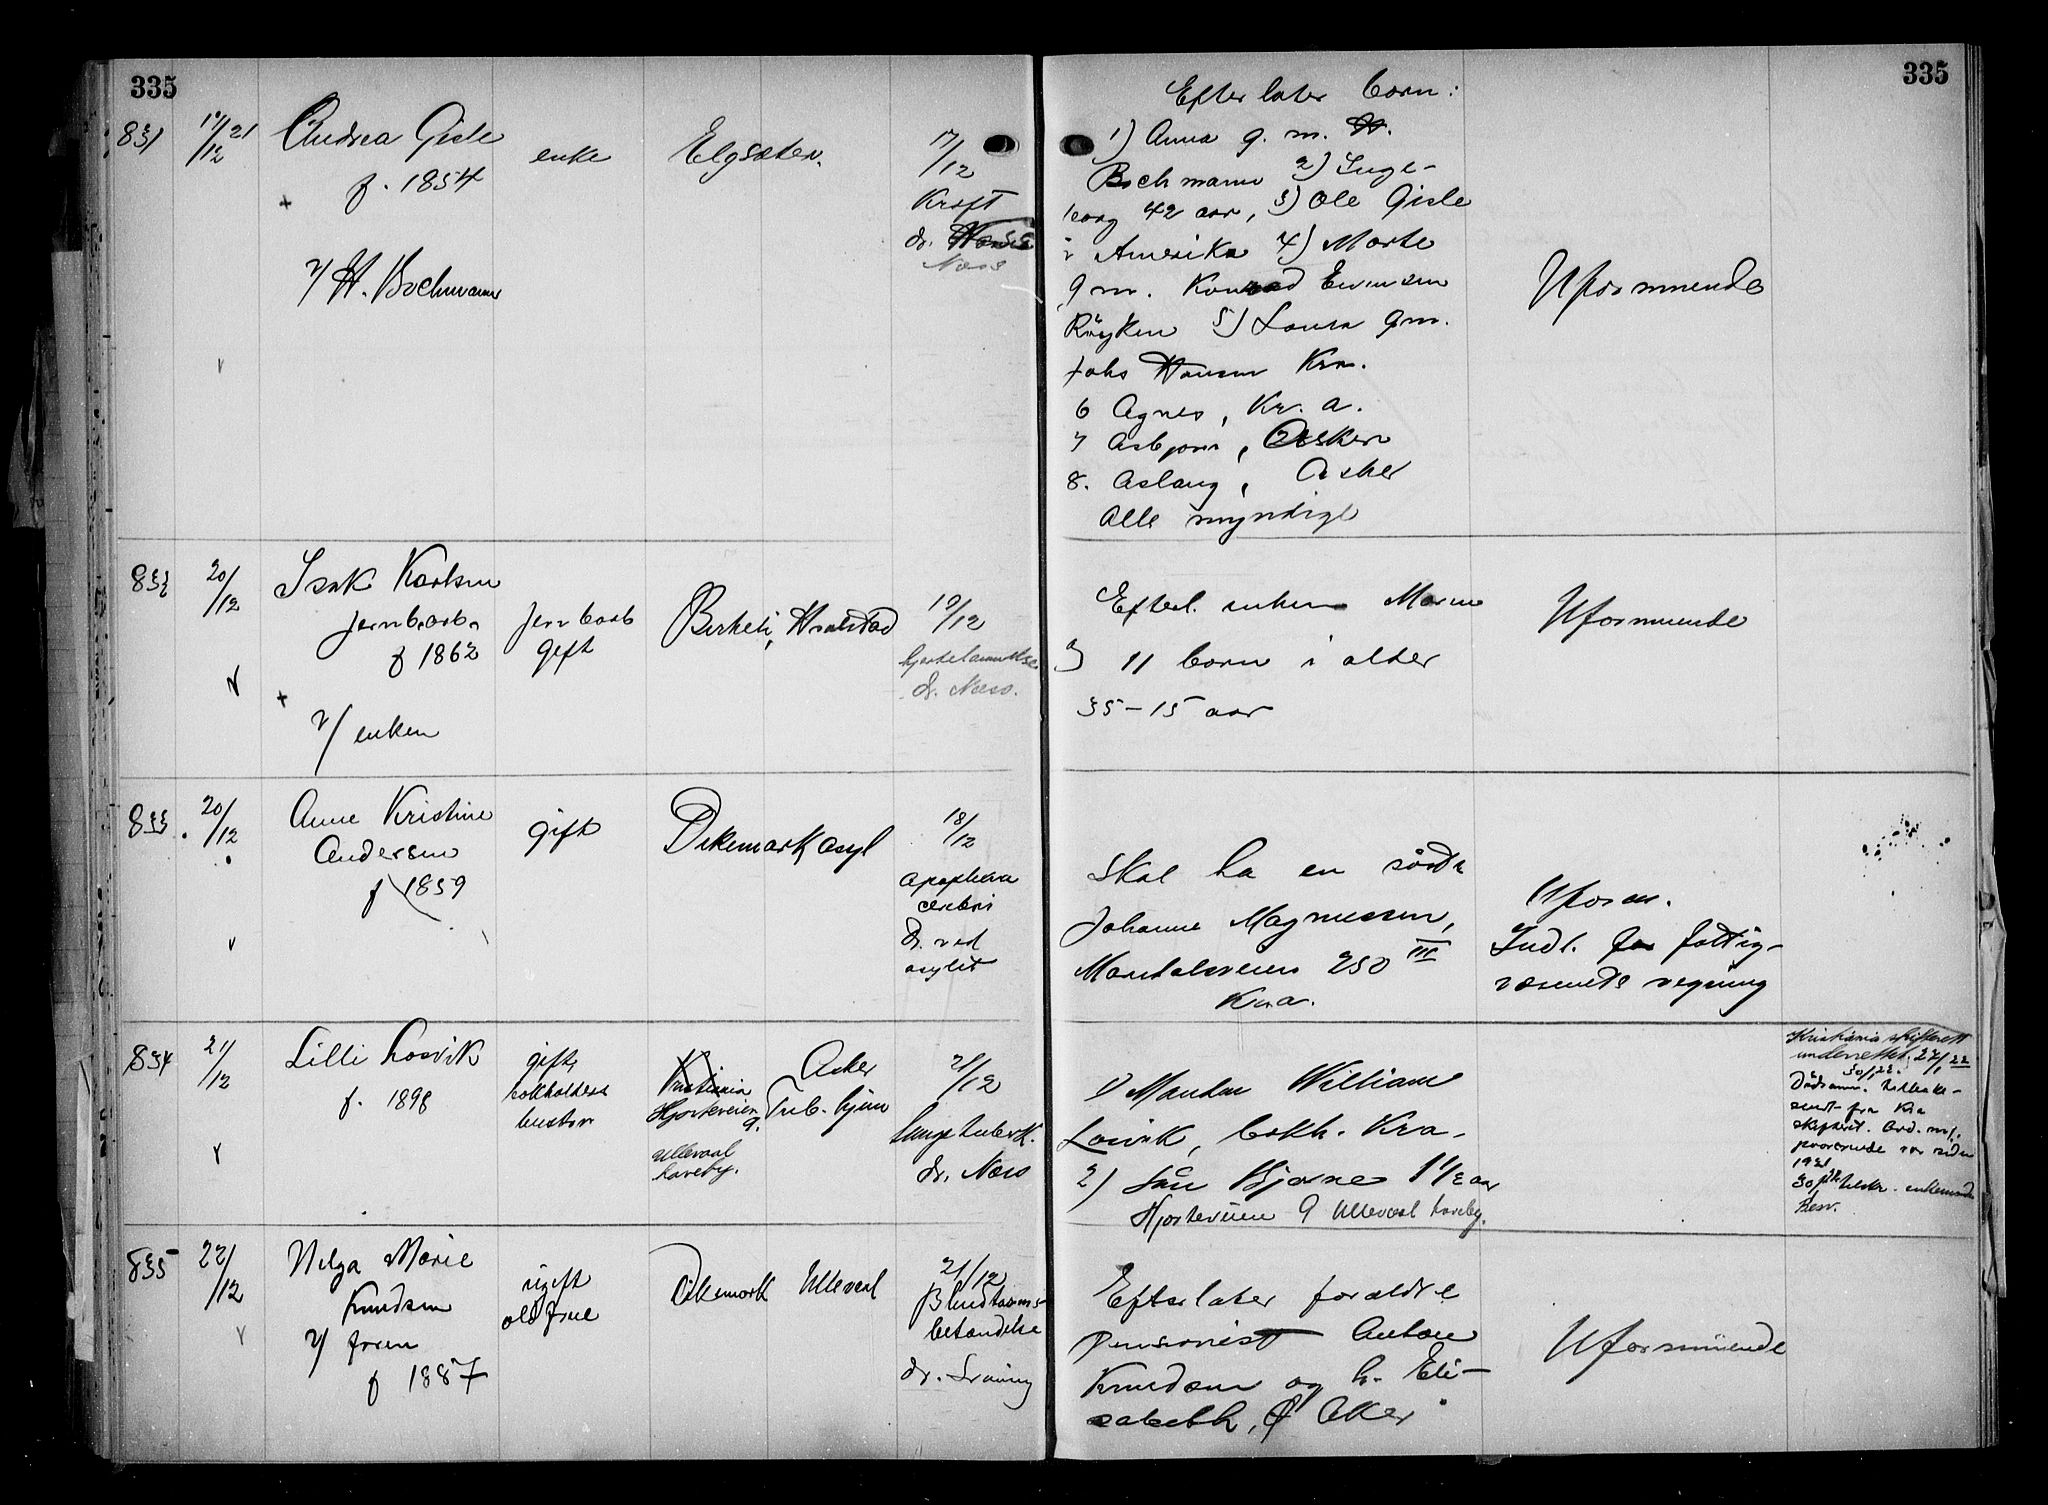 335
335
831
19/12 21
Andrea Gisle
f. 1854
+
v/ H. Bochmann
enke
Elgsæter.
17/12
Kræft
dr.
Næss
Efterlater børn:
1) Anna g. m.
Bochmann 2) Inge-
borg 42 aar, 3) Ole Gisle
i Amerika 4) Marte
g m. Konrad Evensen
Røyken 5) Laura g m.
Johs Hansen Kra.
6 Agnes, Kr. a.
7 Asbjørn, Asker
8. Aslaug, Asker
Alle myndige
Uformuende
832
20/12
Isak Karlsen
jernb.arb.
f 1862
+
v/ enken
Jernbarb
gift
Birkeli, Hvalstad
19/12
hjertelammelse
dr. Næss.
Efterl. enken Maren
og 11 børn i alder
35 - 15 aar
Uformuende
833.
20/12
Anne Kristine
Andersen
f 1859
gift
Dikemark asyl
18/12
Apoplexia
cerebri
dr. ved
asylet
Skal ha en søster
Johanne Magnussen,
Maridalsveien 250 III
Kra.
Uform.
Indl. for fattig-
væsenets regning
834
21/12
Lilli Losvik
f. 1898
gift,
bokholders
hustru
Kristiania
Hjorteveien
9.
Ullevaal
haveby.
Asker
Tub. hjem
21/12
Lungetuberk.
dr. Næss
1) Manden William
Losvik, bokh. Kra.
2) søn Bjarne 1 1/2 aar
Hjorteveien 9 Ullevaal haveby.
Kristiania skifterett
underrettet. 27/1 22
30/1 22.
Dødsanm. tilbake-
sendt fra Kra
skifteret.
1921
835
22/12
Helga Marie
Knudsen
v/ faren
f 1887
ugift
oldfrue
Dikemark
Ullevaal
21/12
Blindtarms-
betændelse
dr.
Efterlater forældre
Pensionist Anton
Knudsen og h. Eli-
sabeth, Ø Aker
Uformuende